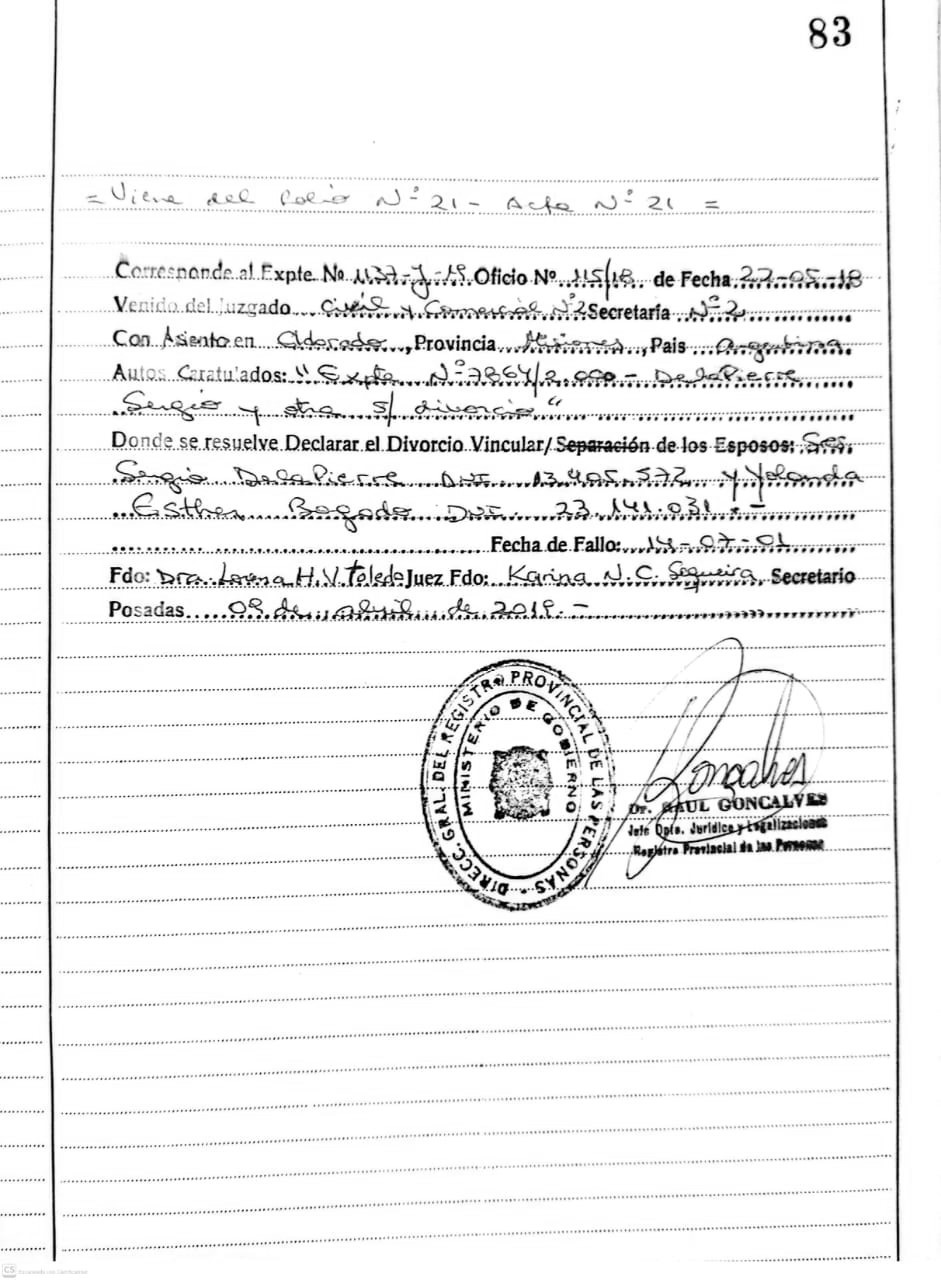 83
= Viene del Folio Nº 21 - Acta Nº 21 =
Corresponde al Expte. Nº 1137-J-19. Oficio Nº 115/18 de Fecha 22-05-18
Venido del Juzgado Civil y Comercial Nº 2 Secretaría Nº 2
Con Asiento en Eldorado, Provincia Misiones, Pais Argentina
Autos Caratulados: "Expte Nº 7864/2.000 - DelaPierre
Sergio y otra s/ divorcio"
Donde se resuelve Declarar el Divorcio Vincular/Separación de los Esposos: Sres.
Sergio DelaPierre DNI. 13.405.572 y Yolanda
Esther Bogado DNI. 23.141.031.-
Fecha de Fallo: 14-07-01
Fdo: Dra. Lorena H.V. Toledo Juez Fdo: Karina N.C. Sequeira, Secretario
Posadas 09 de abril de 2019.-
DIRECC. GRAL. DEL REGISTRO PROVINCIAL DE LAS PERSONAS
MINISTERIO DE GOBIERNO
Goncalves
Dr. RAUL GONCALVES
Jefe Dpto. Jurídico y Legalizaciones
Registro Provincial de las Personas
CS Escaneado con CamScanner